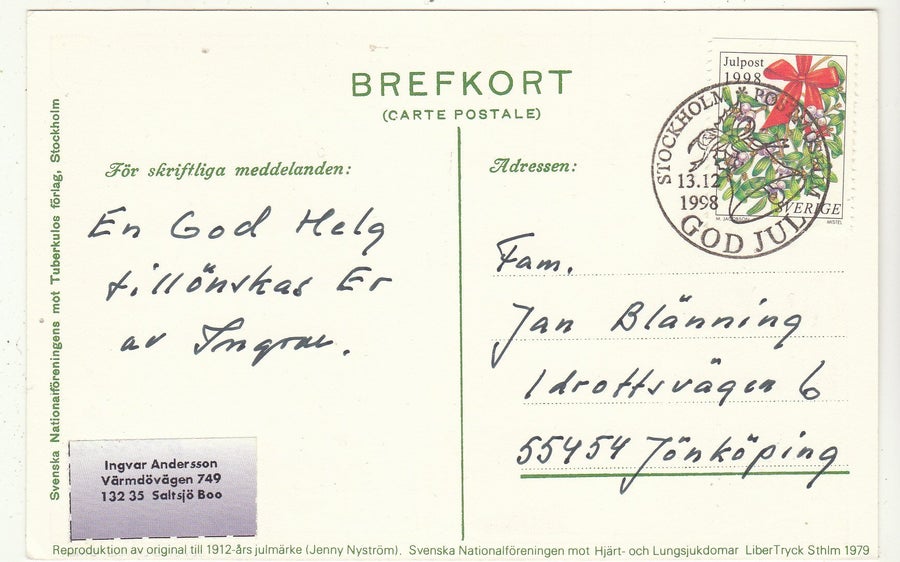 BREFKORT
(CARTE POSTALE)
Julpost
1998
STOCKHOLM * POSTMUSEUM
13.12
1998
GOD JUL
SVERIGE
M. JACOBSSON
MISTEL
För skriftliga meddelanden:
En God Helg
tillönskas Er
av Ingvar.
Adressen:
Fam.
Jan Blänning
Idrottsvägen 6
55454 Jönköping
Ingvar Andersson
Värmdövägen 749
132 35 Saltsjö Boo
Svenska Nationalföreningens mot Tuberkulos förlag, Stockholm
Reproduktion av original till 1912-års julmärke (Jenny Nyström). Svenska Nationalföreningen mot Hjärt- och Lungsjukdomar LiberTryck Sthlm 1979